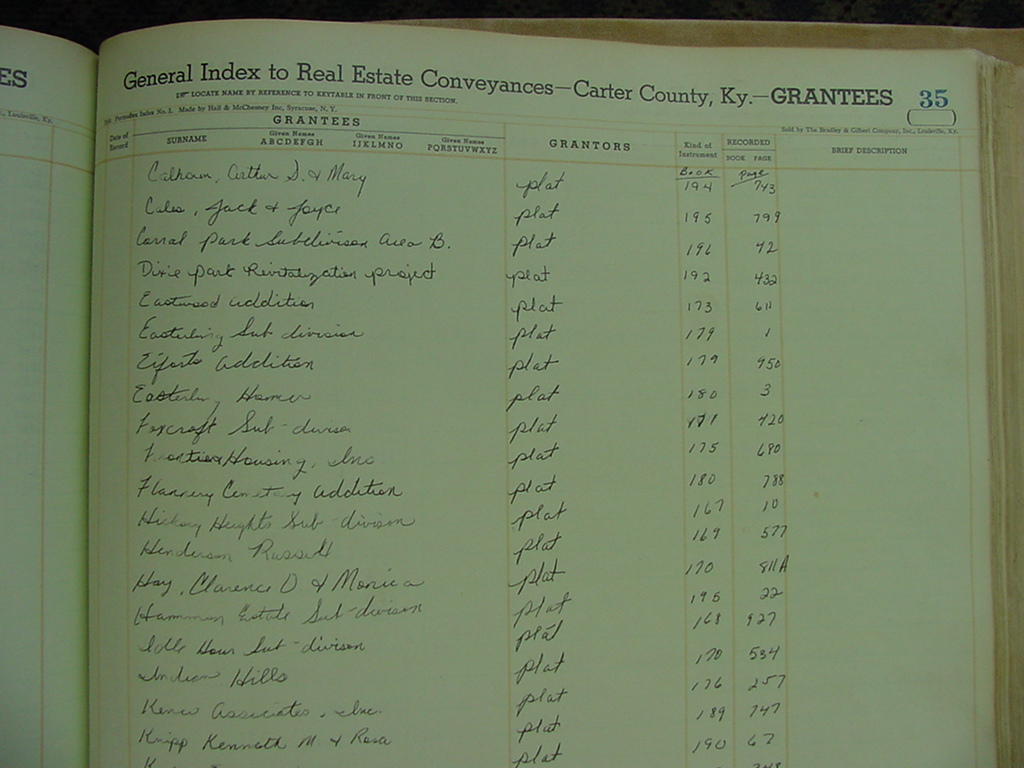 General Index to Real Estate Conveyances—Carter County, Ky.—GRANTEES 35
LOCATE NAME BY REFERENCE TO KEYTABLE IN FRONT OF THIS SECTION.
Made by Hall & McChesney Inc, Syracuse, N. Y.
Sold by The Bradley & Gilbert Company, Inc., Louisville, Ky.
GRANTEES
Date of Record SURNAME Given Names ABCDEFGH Given Names IJKLMNO Given Names PQRSTUVWXYZ GRANTORS Kind of Instrument RECORDED BOOK PAGE BRIEF DESCRIPTION
Book Page
Calhoun, Arthur D. & Mary plat 194 743
Jack & Joyce plat 195 799
Park Subdivision Area B. plat 196 42
Dixie Park Revitalization project plat 192 432
Eastwood addition plat 173 611
Easterling Sub division plat 179 1
addition plat 179 950
Easterling Homer plat 180 3
Foxcroft Sub-division plat 171 420
Housing, Inc plat 175 690
Flannery Cemetery Addition plat 180 788
Hickory Heights Sub-division plat 167 10
Henderson Russell plat 169 577
Hay, Clarence D & Monica plat 170 811A
Estate Sub-division plat 195 22
Idle Hour Sub-division plat 168 927
Indian Hills plat 170 534
Associates, Inc. plat 176 257
Knipp Kenneth M & Rosa plat 189 747
plat 190 62
ES
Louisville, Ky.